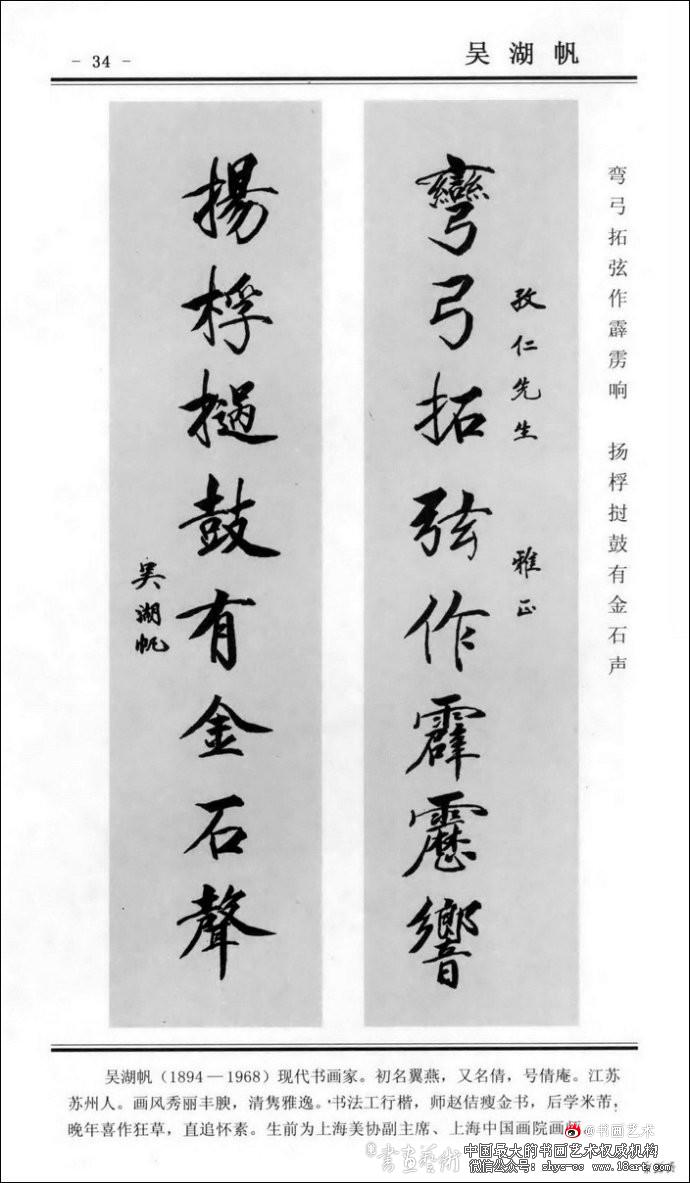 - 34 -
吴湖帆
弯弓拓弦作霹雳响 扬桴挝鼓有金石声
孜仁先生 雅正
彎弓拓弦作霹靂響
揚桴撾鼓有金石聲
吴湖帆
吴湖帆（1894—1968）现代书画家。初名翼燕，又名倩，号倩庵。江苏
苏州人。画风秀丽丰腴，清隽雅逸。书法工行楷，师赵佶瘦金书，后学米芾，
晚年喜作狂草，直追怀素。生前为上海美协副主席、上海中国画院画师。
@书画艺术
書畫藝術
中国最大的书画艺术权威机构
微信公众号：shys-cc www.18art.com